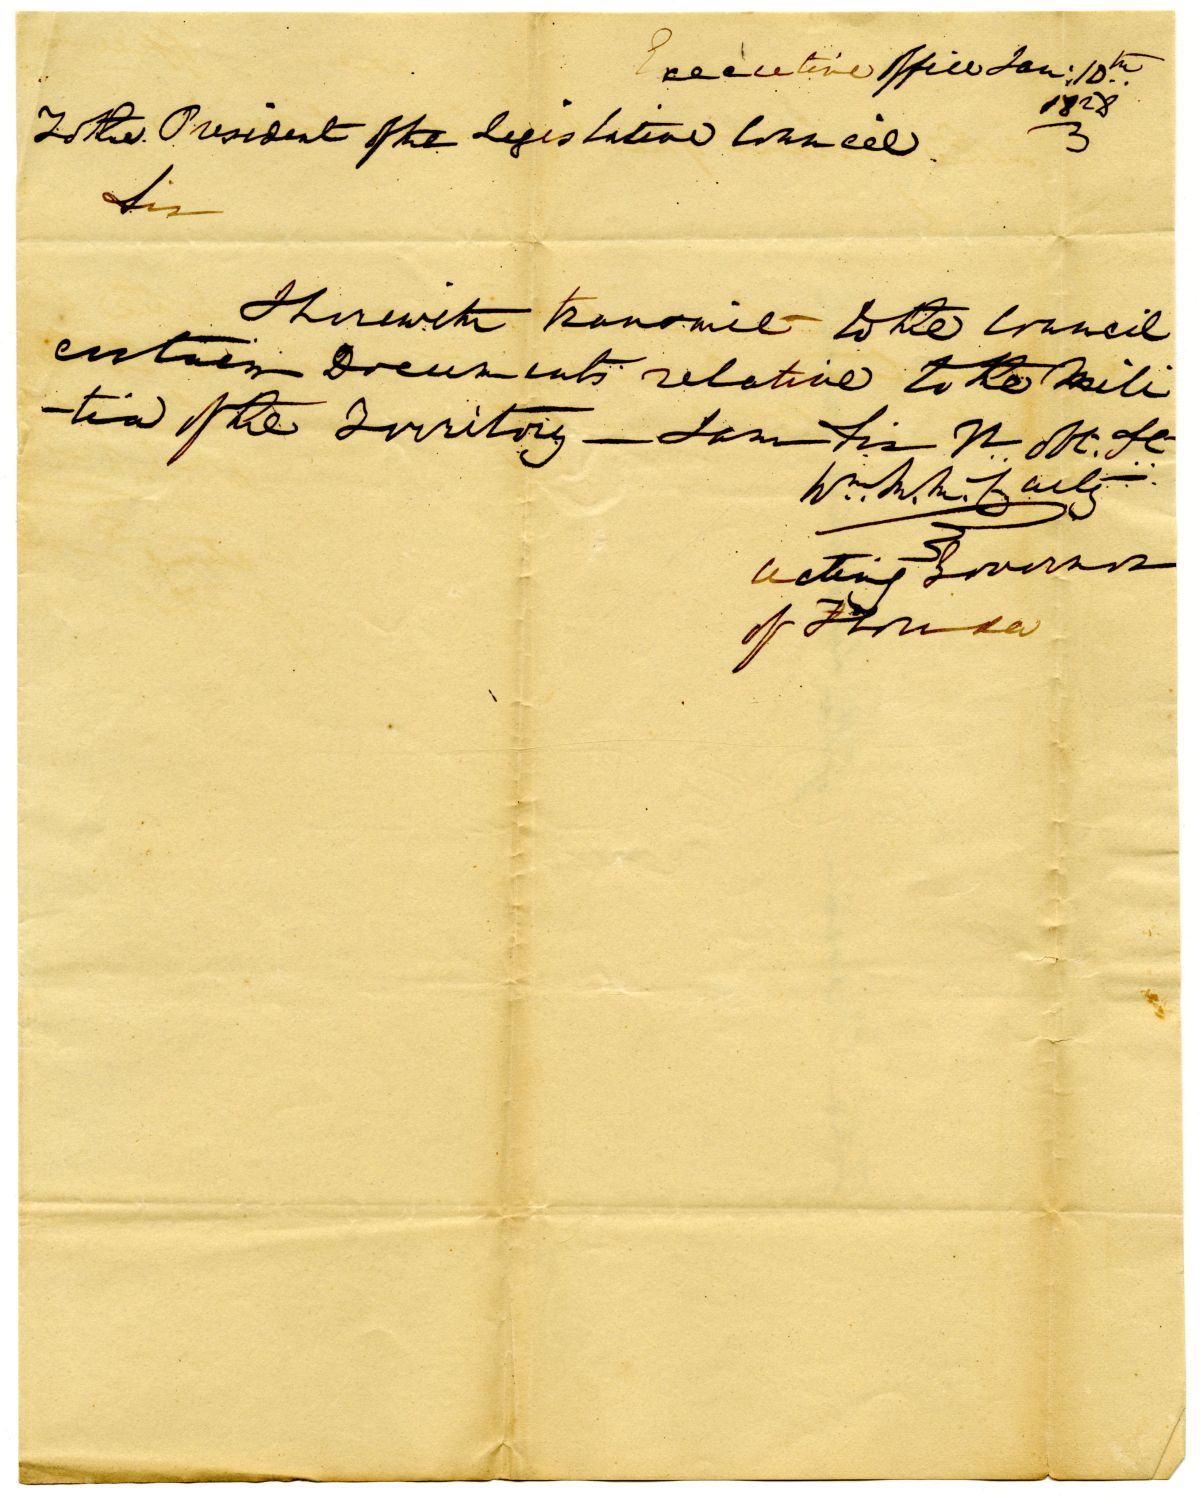 Executive Office Jan: 10th
1828
To the President of the Legislative Council.
Sir
I herewith transmit to the Council
certain Documents relative to the Mili
-tia of the Territory — I am Sir
Wm. M. McCarty
Acting Governor
of Florida